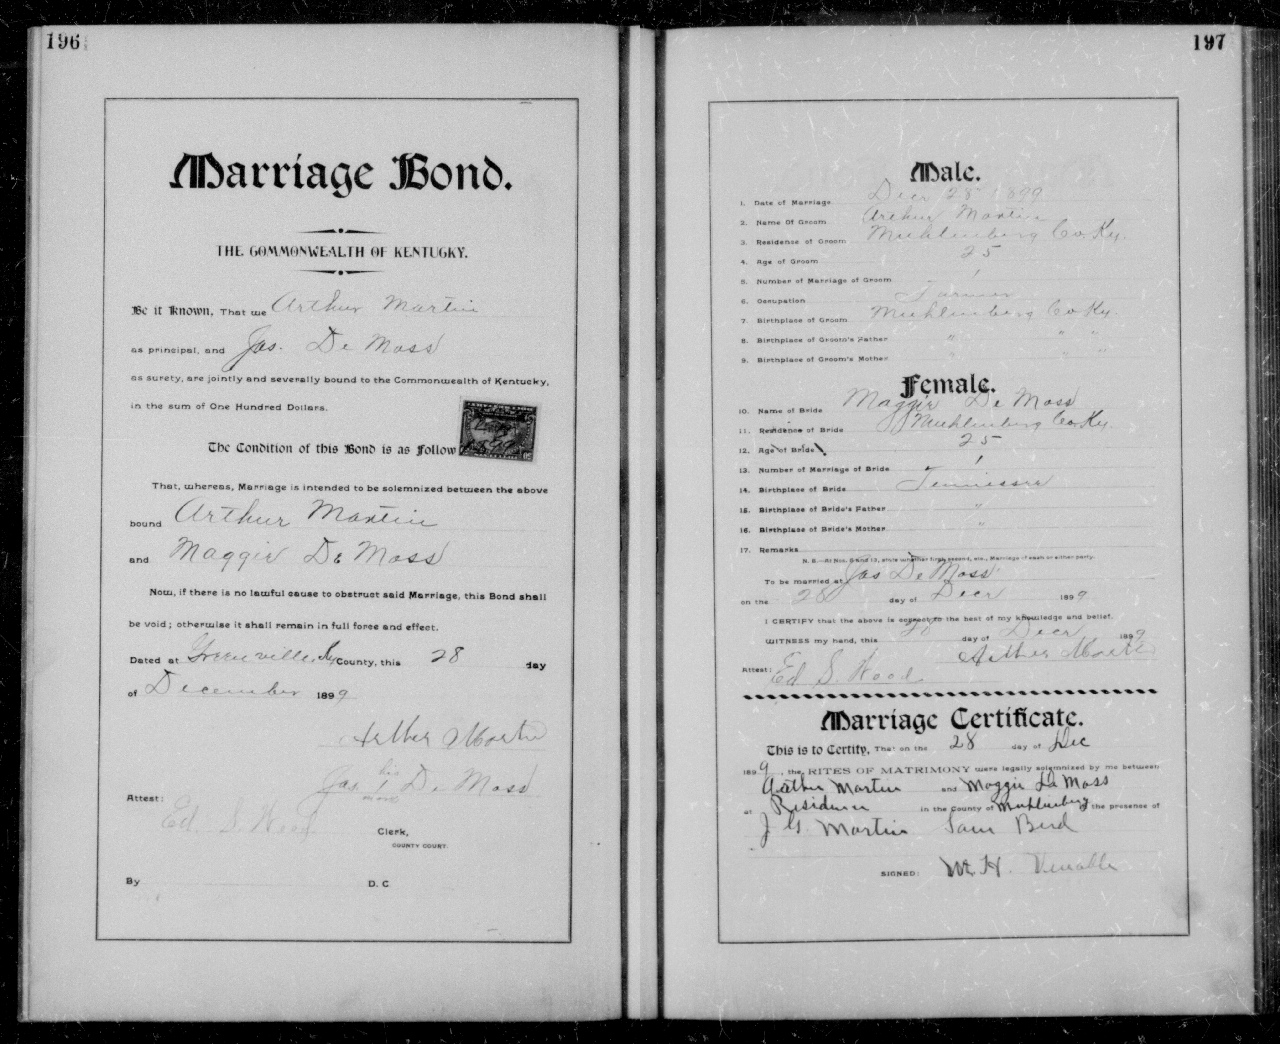 196
Marriage Bond.
THE COMMONWEALTH OF KENTUCKY.
Be it Known, That we Arthur Martin
as principal, and Jas. De Moss
as surety, are jointly and severally bound to the Commonwealth of Kentucky,
in the sum of One Hundred Dollars.
The Condition of this Bond is as Follow
That, whereas, Marriage is intended to be solemnized between the above
bound Arthur Martin
and Maggie De Moss
Now, if there is no lawful cause to obstruct said Marriage, this Bond shall
be void; otherwise it shall remain in full force and effect.
Dated at Greenville, Ky County, this 28 day
of December 1899
Arther Martin
his
Jas. De Moss
mark
Attest:
Ed. S. Wood
Clerk,
COUNTY COURT.
By D. C
197
Male.
1. Date of Marriage Decr 28 1899
2. Name Of Groom Arthur Martin
3. Residence of Groom Muhlenburg Co. Ky.
4. Age of Groom 25
5. Number of Marriage of Groom 1
6. Occupation Farmer
7. Birthplace of Groom Muhlenburg Co Ky.
8. Birthplace of Groom's Father " " "
9. Birthplace of Groom's Mother " " "
Female.
10. Name of Bride Maggie De Moss
11. Residence of Bride Muhlenburg Co. Ky.
12. Age of Bride 25
13. Number of Marriage of Bride 1
14. Birthplace of Bride Tennessee
15. Birthplace of Bride's Father "
16. Birthplace of Bride's Mother "
17. Remarks
N. B.—At Nos. 5 and 13, state whether first, second, etc., Marriage of each or either party.
To be married at Jas De Moss'
on the 28 day of Decr 1899
I CERTIFY that the above is correct to the best of my knowledge and belief.
WITNESS my hand, this 28 day of Decr 1899
Arther Martin
Attest: Ed. S. Wood
Marriage Certificate.
This is to Certify, That on the 28 day of Dec
1899, the RITES OF MATRIMONY were legally solemnized by me between
Arthur Martin and Maggie De Moss
at Residence in the County of Muhlenburg the presence of
J G. Martin Sam Bird
SIGNED: W. H. Venable